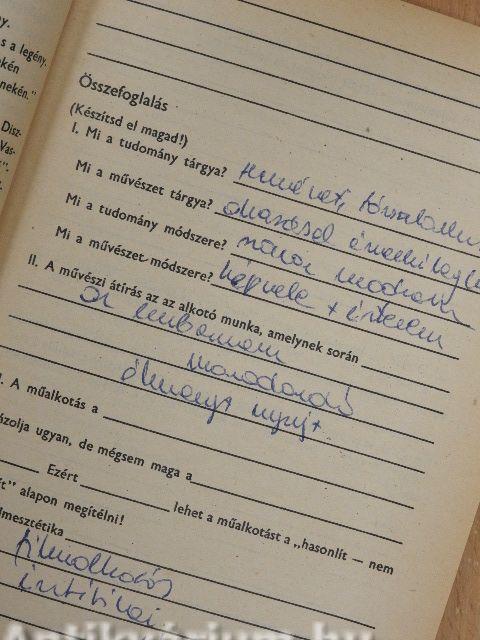 y.
s a legény.
ekén
nekén."
Disz-
Vas-
Összefoglalás
(Készítsd el magad!)
I. Mi a tudomány tárgya? természet, társadalom
Mi a művészet tárgya?
Mi a tudomány módszere?
Mi a művészet módszere? képzelet + értelem
II. A művészi átírás az az alkotó munka, amelynek során
az emberben
maradandó
élményt nyújt
I. A műalkotás a
ázolja ugyan, de mégsem maga a
Ezért lehet a műalkotást a „hasonlít — nem
ít" alapon megítélni!
lmesztétika
filmalkotás
Antikvárium.hu